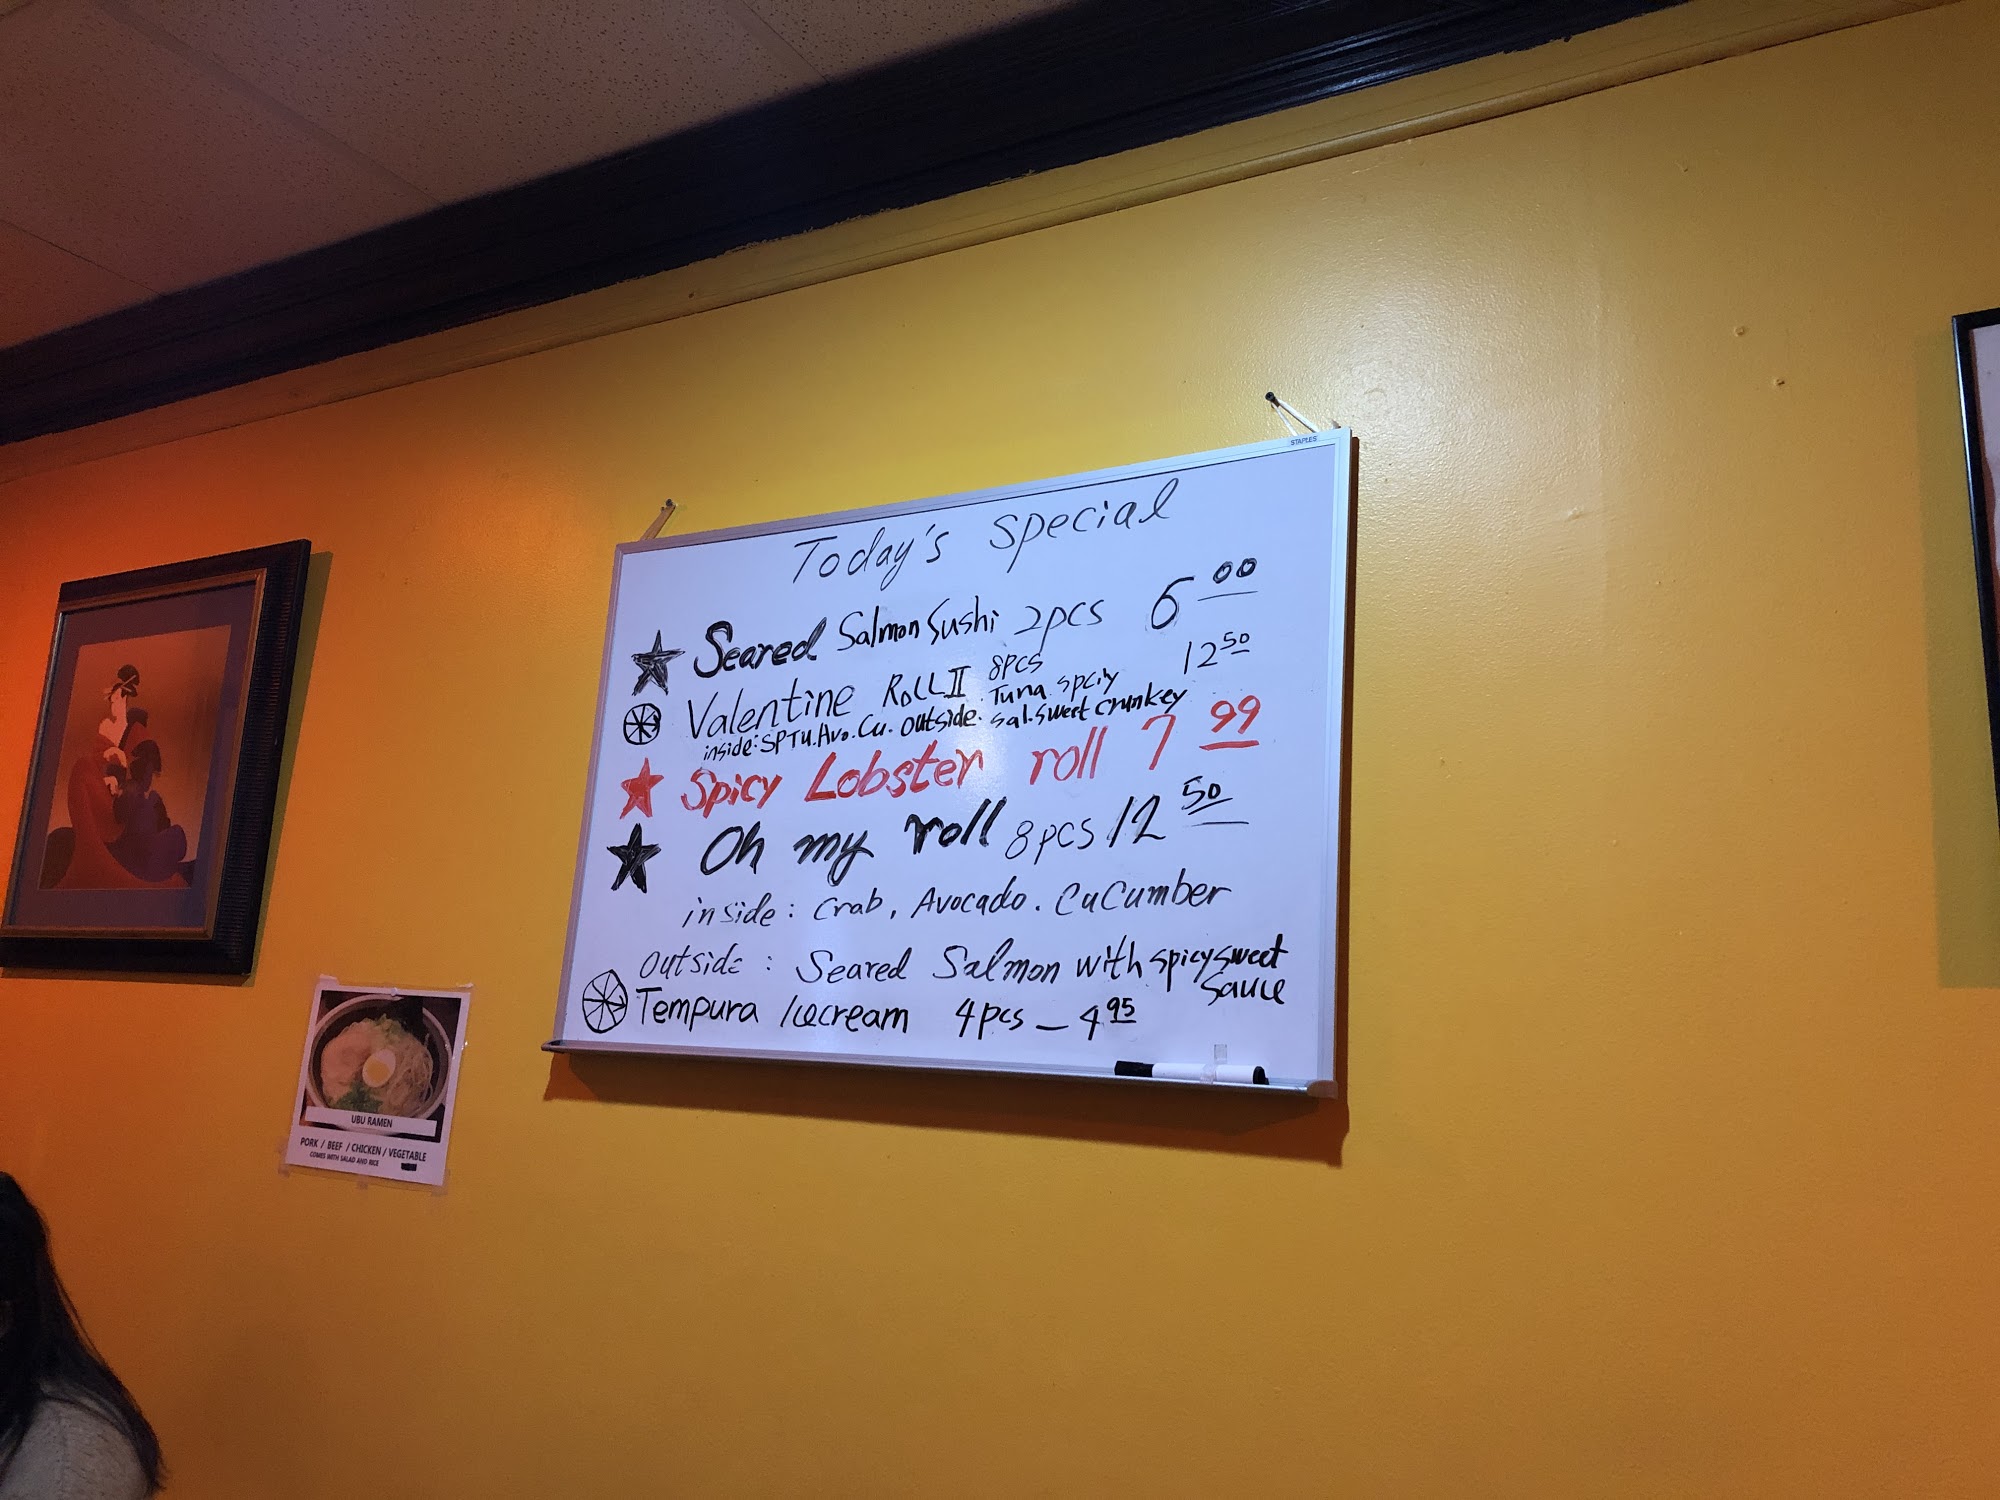 STAPLES
Today's Special
Seared Salmon Sushi 2pcs 6.00
Valentine Roll II 8pcs 12.50
inside: SPTU. Avo. Cu. outside: Tuna. spciy sal. sweet crunkey
Spicy Lobster roll 7.99
Oh my roll 8pcs 12.50
inside: Crab, Avocado. Cucumber
outside: Seared Salmon with spicy sweet sauce
Tempura Icecream 4pcs – 4.95
UBU RAMEN
PORK / BEEF / CHICKEN / VEGETABLE
COMES WITH SALAD AND RICE